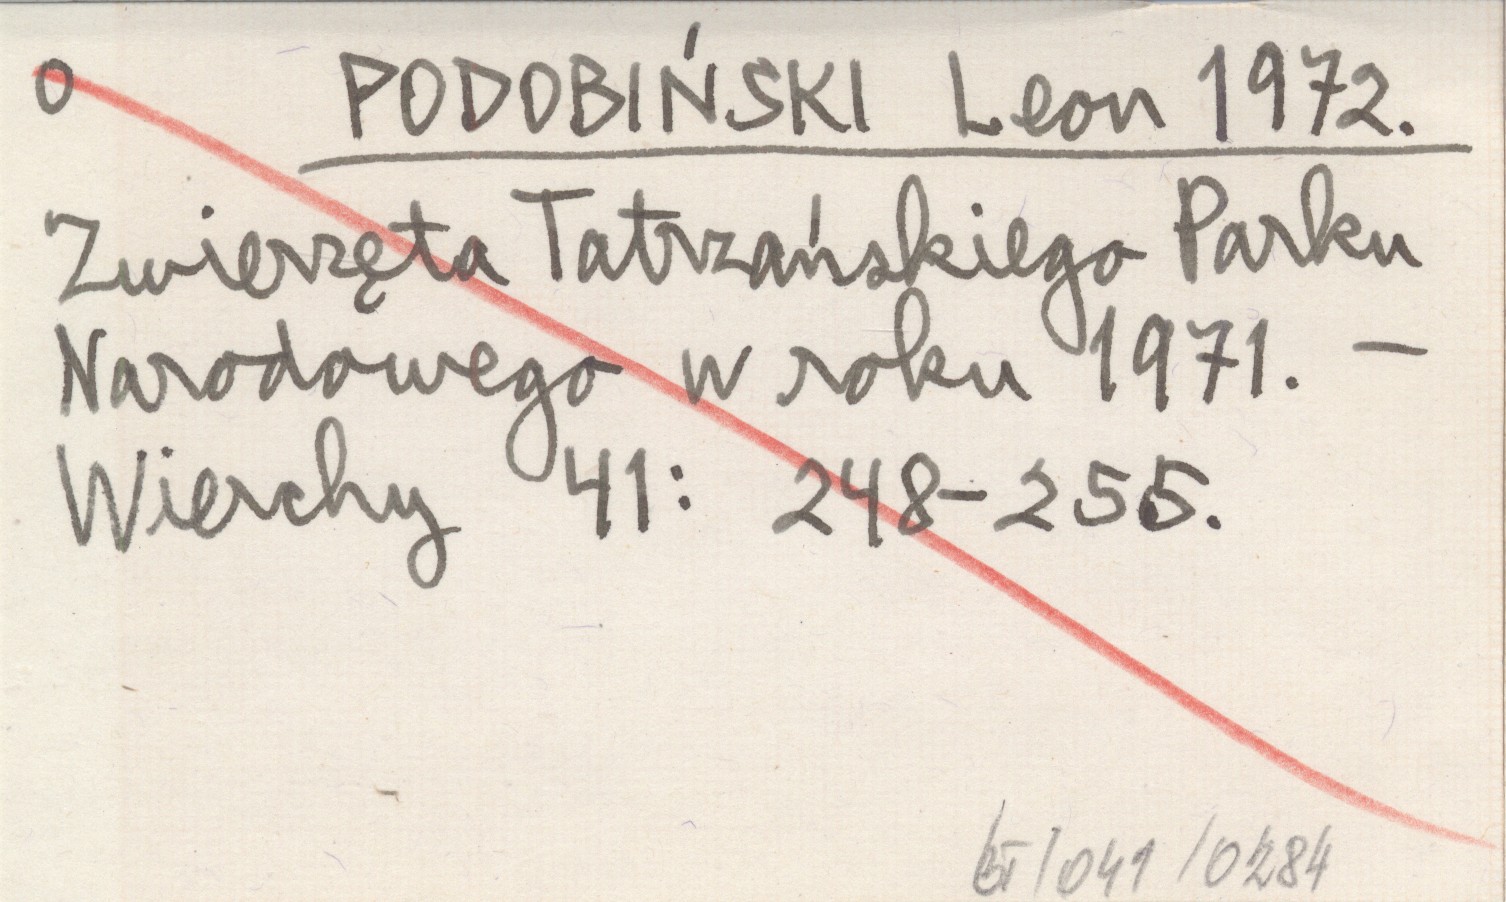 O PODOBIŃSKI Leon 1972.
Zwierzęta Tatrzańskiego Parku
Narodowego w roku 1971. –
Wierchy 41: 248–255.
/041/0284